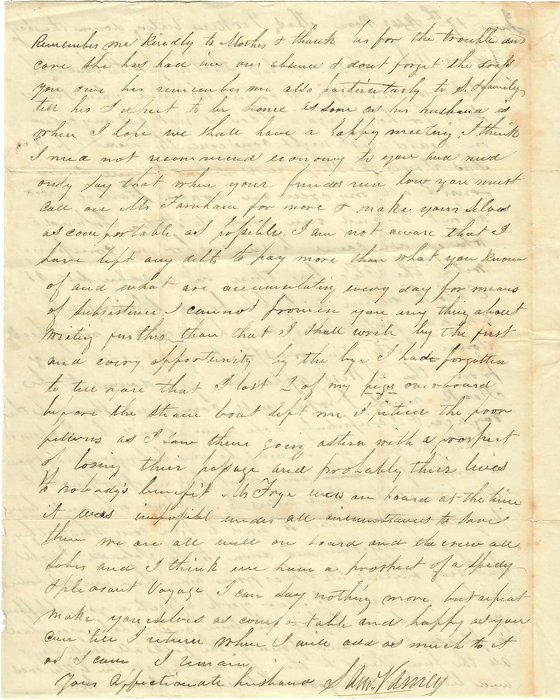 Remember me kindly to Mother & thank her for the trouble and
care she has had in our absence & dont forget the
you owe her remember me also particularly to S. & family
tell her I expect to be home as soon as her husband is
when I hope we shall have a happy meeting, I think
I need not recommend economy to you and need
only say that when your fundes run low you must
call on Mr Farnham for more & make yourselves
as comfortable as possible. I am not aware that I
have left any debts to pay more than what you know
of and what are accumulating every day for means
of subsistence I cannot promise you any thing about
writing further than that I shall write by the first
and every opportunity by the bye I had forgotten
to tell you that I lost 2 of my pigs overboard
before the steam boat left me I pitied the poor
fellows as I saw them going astern with a prospect
of losing their passage and probably their lives
to nobody's benefit Mr Frye was on board at the time
it was impossible under all circumstances to save
them we are all well on board and the crew all
sober and I think we have a prospect of a speedy
& pleasant Voyage I can say nothing more but repeat
make yourselves as comfortable and happy as you
can till I return when I will add as much to it
as I can I remain
Your Affectionate husband Varney